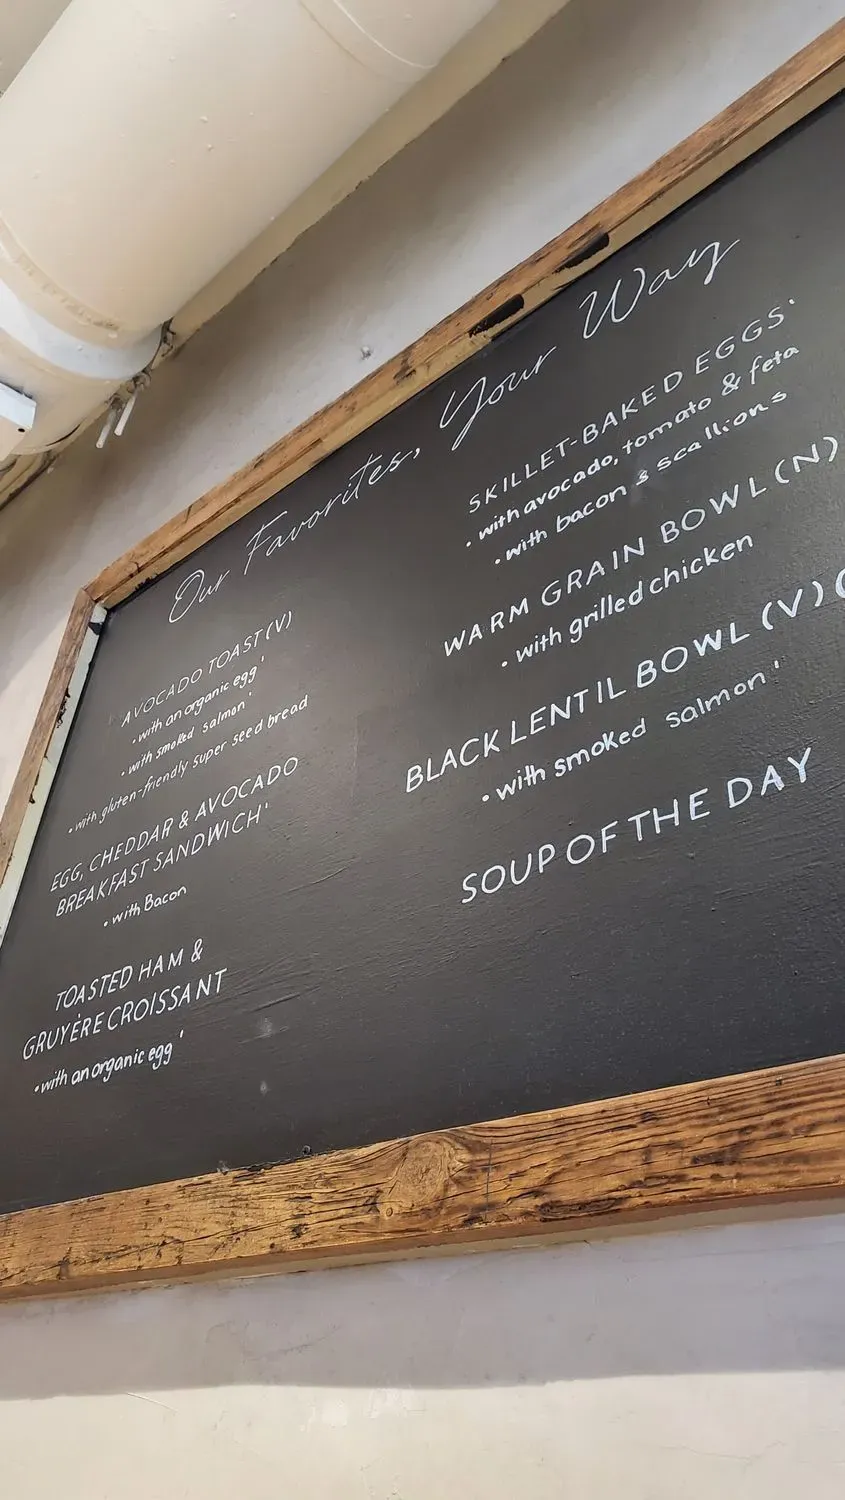 Our Favorites, Your Way
AVOCADO TOAST (V)
• with an organic egg'
• with smoked salmon'
• with gluten-friendly super seed bread
EGG, CHEDDAR & AVOCADO
BREAKFAST SANDWICH'
• with Bacon
TOASTED HAM &
GRUYÈRE CROISSANT
• with an organic egg'
SKILLET-BAKED EGGS'
• with avocado, tomato & feta
• with bacon & scallions
WARM GRAIN BOWL (N)
• with grilled chicken
BLACK LENTIL BOWL (V) (
• with smoked salmon'
SOUP OF THE DAY